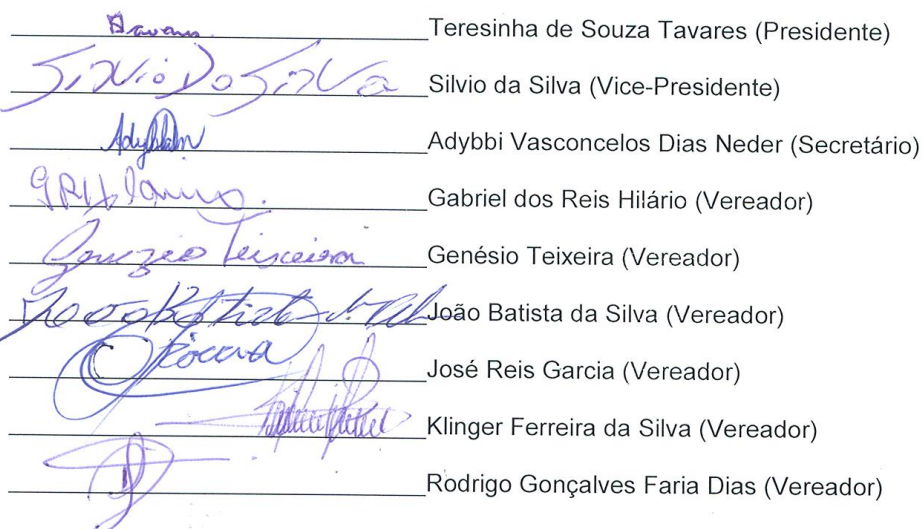 Teresinha de Souza Tavares (Presidente)
Silvio Da Silva Silvio da Silva (Vice-Presidente)
Adybbi Vasconcelos Dias Neder (Secretário)
Gabriel dos Reis Hilário (Vereador)
Genézio Teixeira Genésio Teixeira (Vereador)
João Batista da Silva (Vereador)
José Reis Garcia (Vereador)
Klinger Ferreira da Silva (Vereador)
Rodrigo Gonçalves Faria Dias (Vereador)